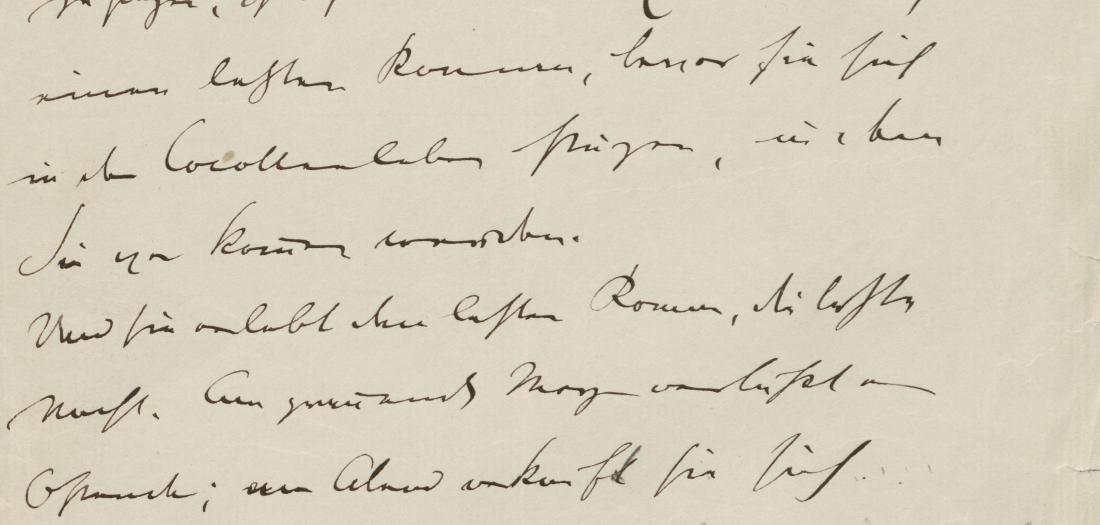 einen letzten Roman, bevor sie sich
in das Cocottenleben stürzen,
Sie zu
Und sie erlebt den letzten Roman, die letzte
Nacht. Am Morgen verläßt er
; am Abend verkauft sie sich....